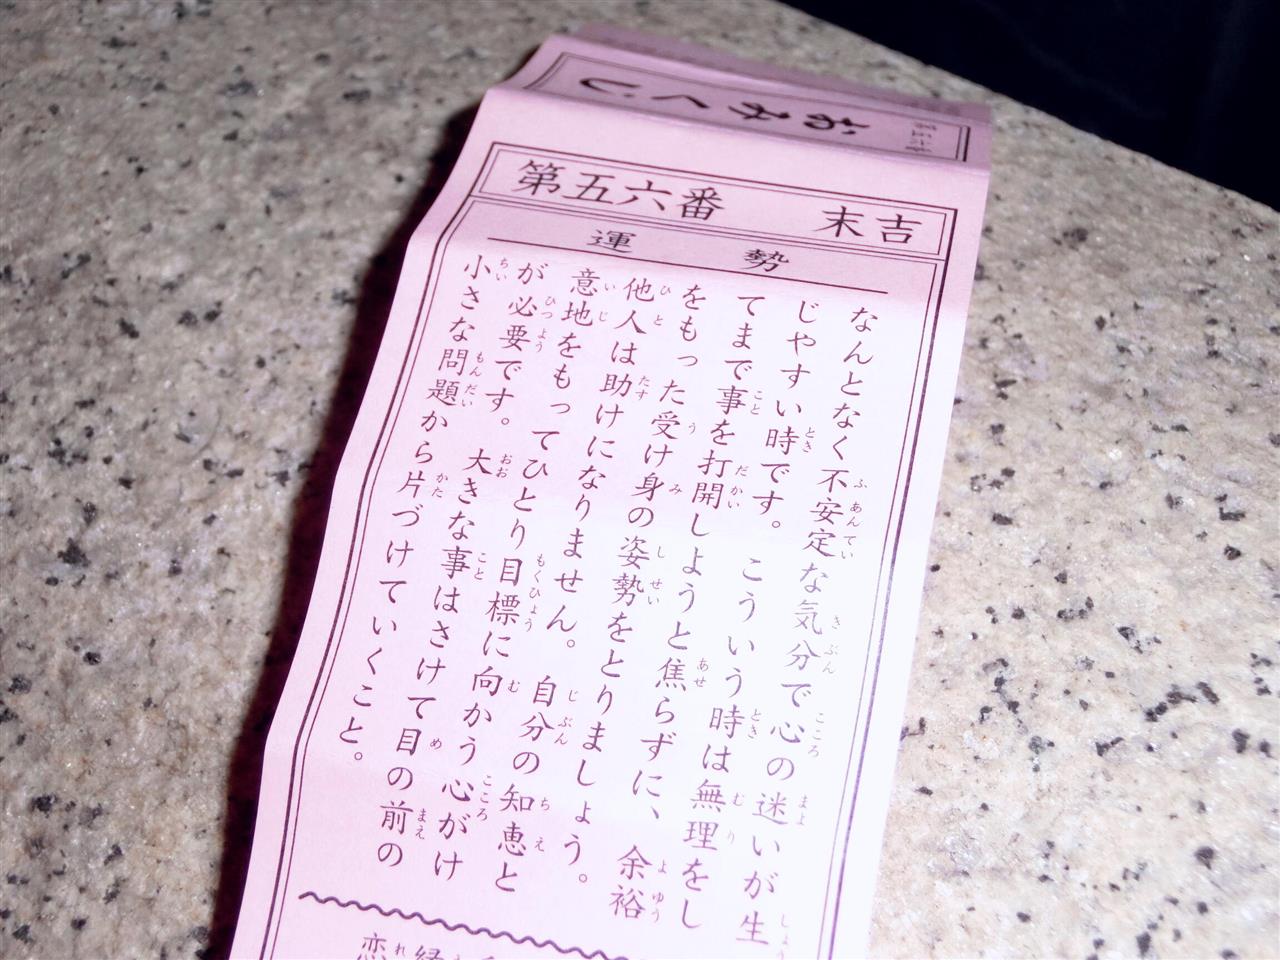 おみくじ
第五六番 末吉
運勢
なんとなく不安定な気分で心の迷いが生
じやすい時です。こういう時は無理をし
てまで事を打開しようと焦らずに、余裕
をもった受け身の姿勢をとりましょう。
他人は助けになりません。自分の知恵と
意地をもってひとり目標に向かう心がけ
が必要です。大きな事はさけて目の前の
小さな問題から片づけていくこと。
恋